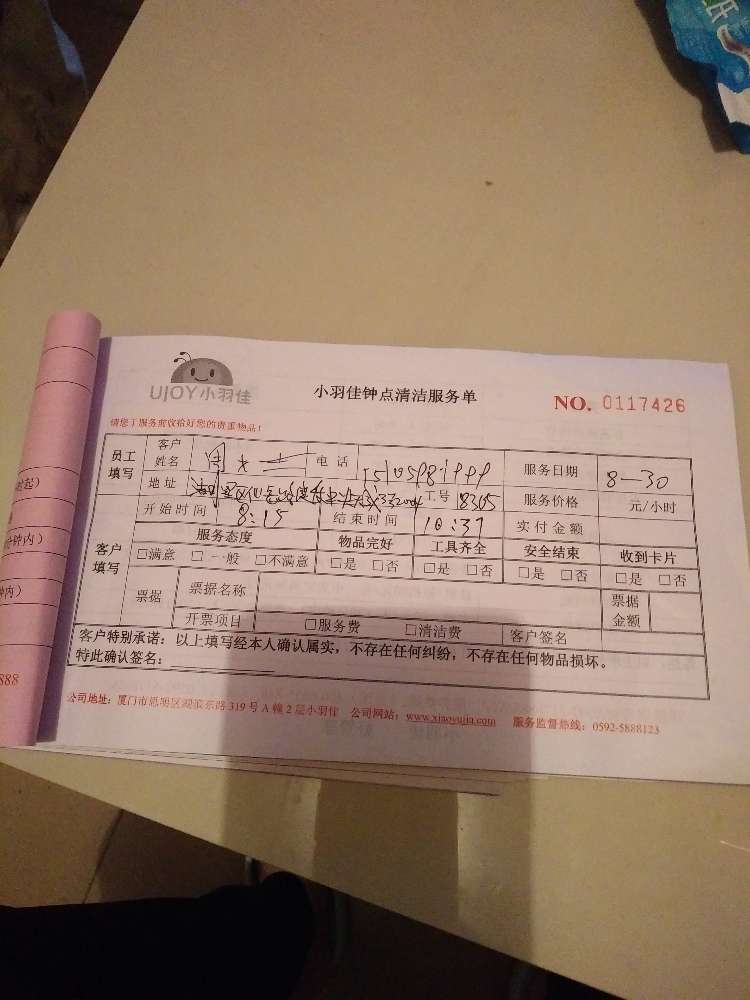 UJOY小羽佳
小羽佳钟点清洁服务单
NO. 0117426
请您于服务前收拾好您的贵重物品！
员工填写 客户姓名 周 电话 服务日期 8-30
地址 工号 8365 服务价格 元/小时
开始时间 8:15 结束时间 10:37 实付金额
客户填写 服务态度 物品完好 工具齐全 安全结束 收到卡片
□满意 □一般 □不满意 □是 □否 □是 □否 □是 □否 □是 □否
票据 票据名称 票据金额
开票项目 □服务费 □清洁费 客户签名
客户特别承诺：以上填写经本人确认属实，不存在任何纠纷，不存在任何物品损坏。
特此确认签名：
公司地址：厦门市思明区湖滨东路319号A幢2层小羽佳 公司网站：www.xiaoyujia.com 服务监督热线：0592-5888123
起)
钟内)
内)
888